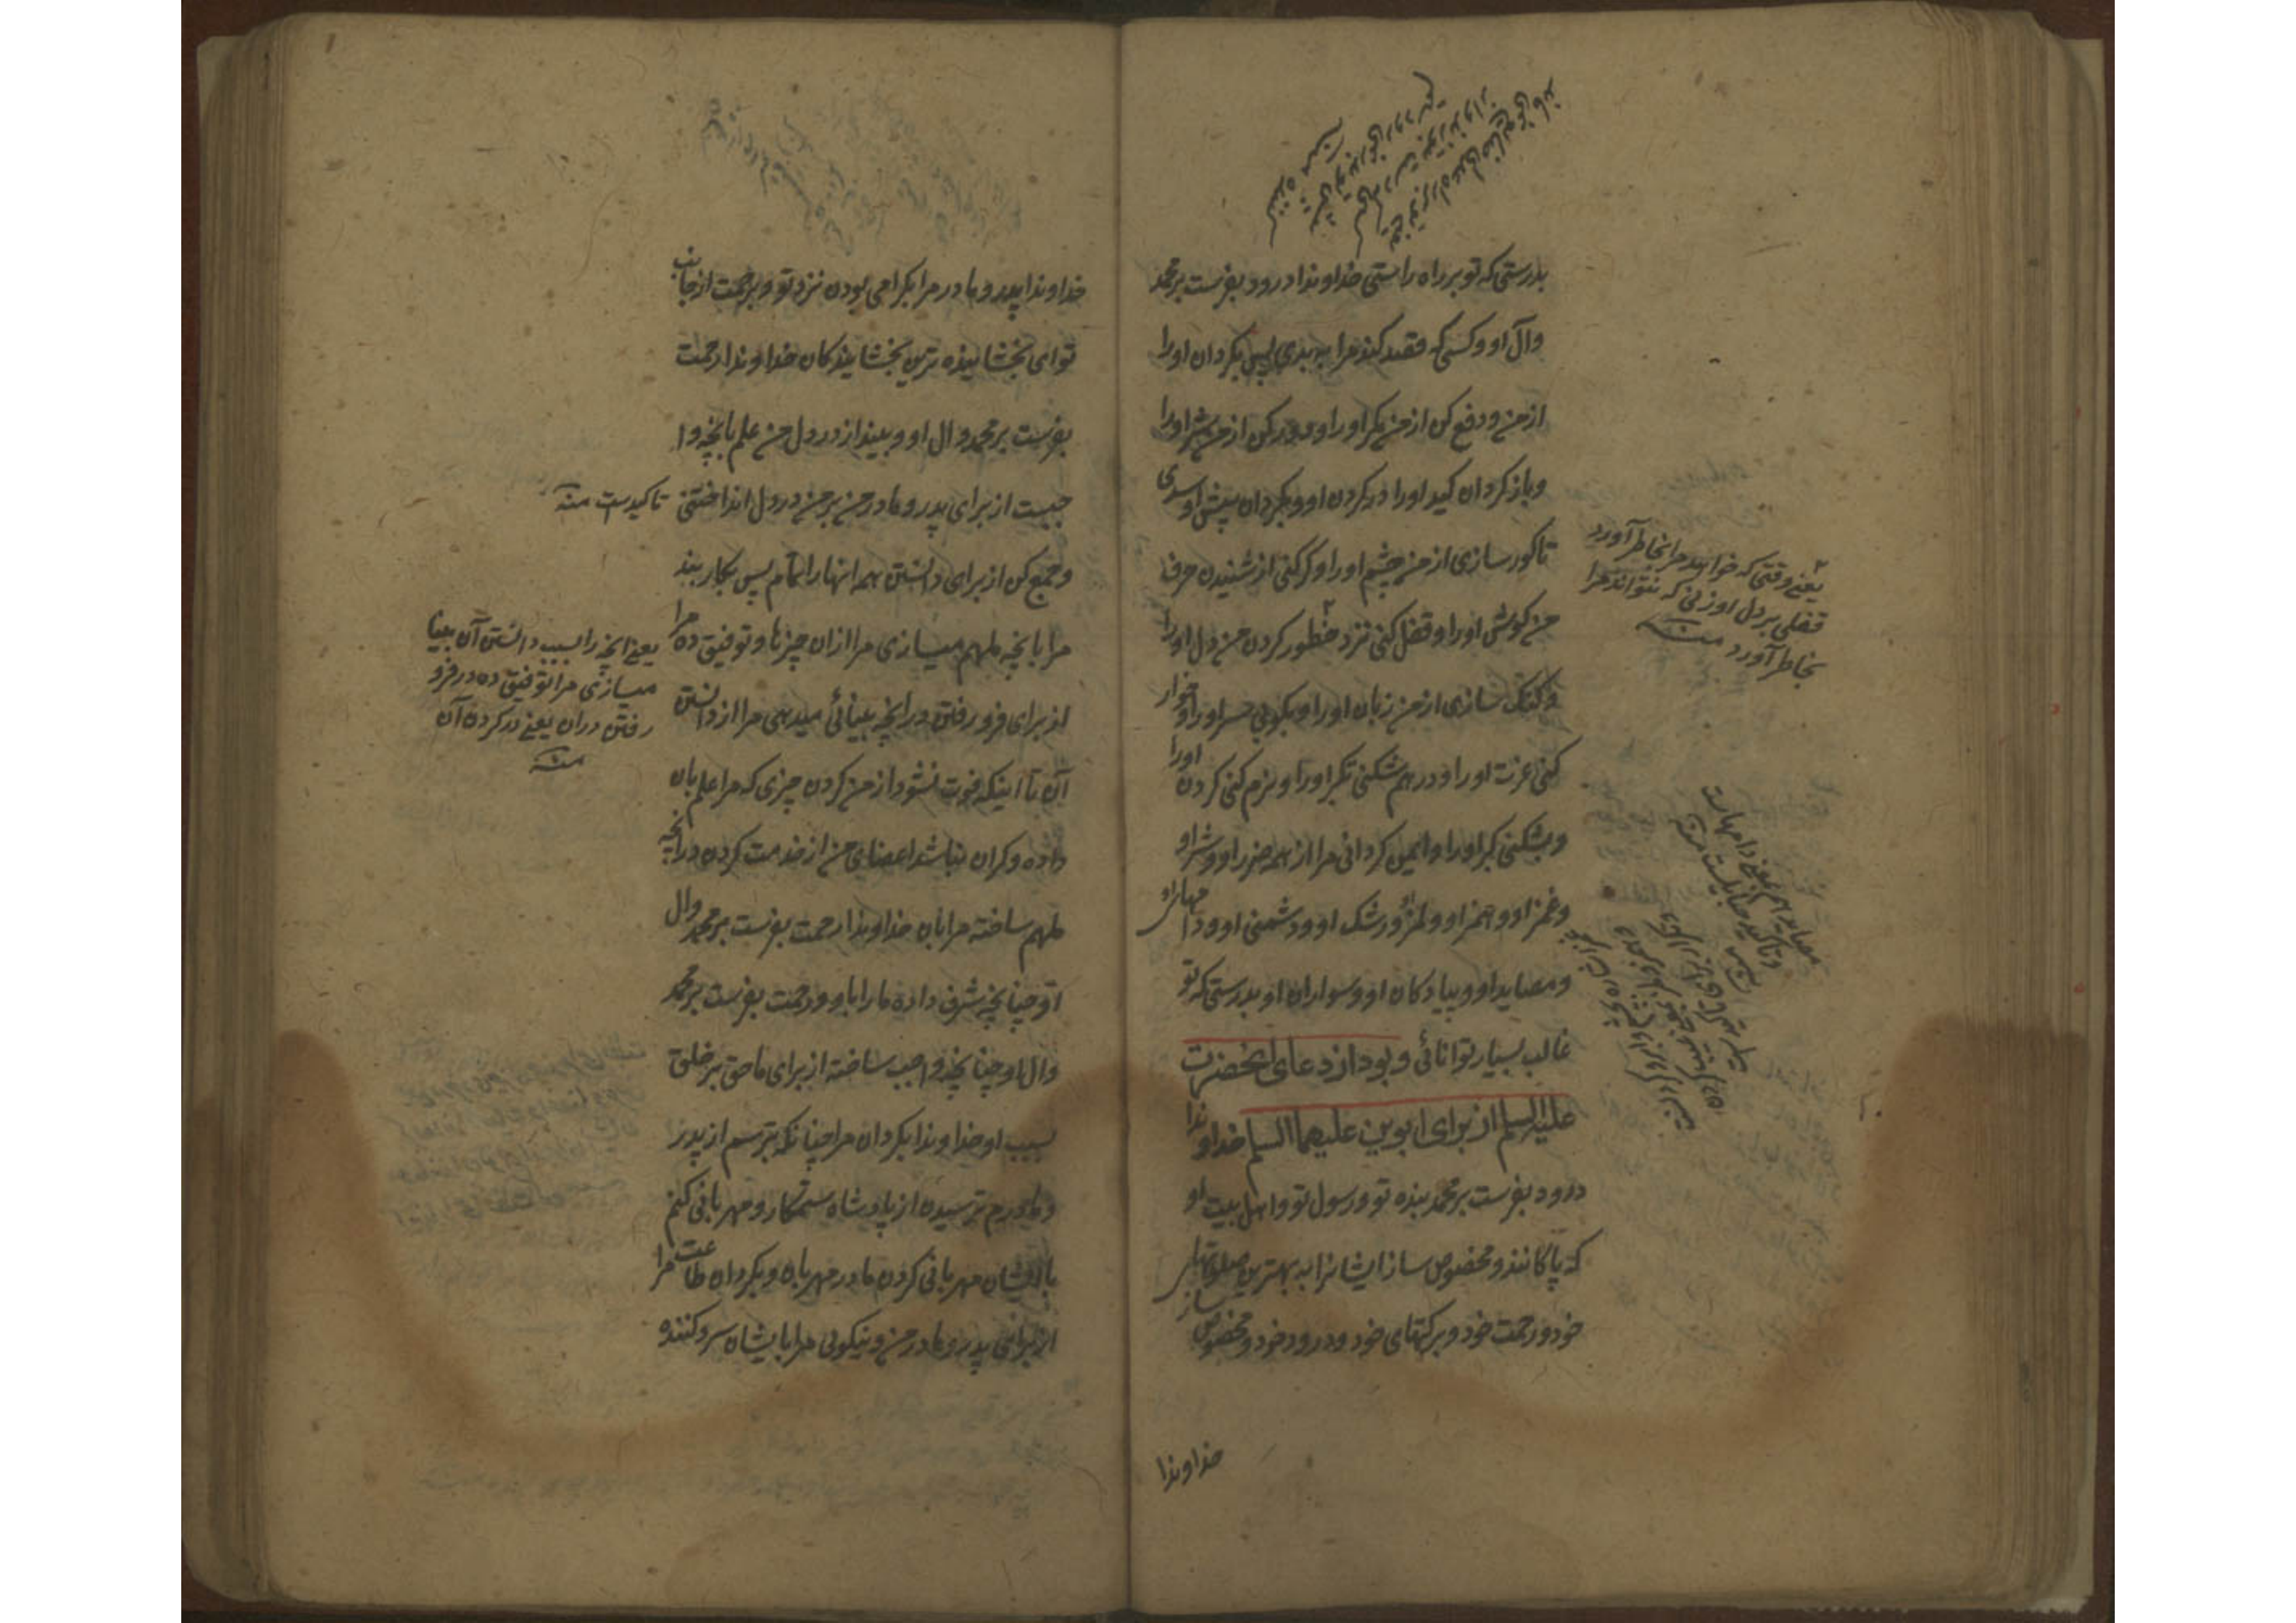 بدرستی که تو بر راه راستی خداوندا درود بفرست بر محمد
وآل او و کسی که قصد کند مرا به بدی پس بکردان او را
از من و دفع کن از من مکر او را و دور کن از من شر او را
و باز کردان کید او را در کردن او و بکردان پیش او سدی
تا کور سازی از من چشم او را و کر کنی از شنیدن حرف
من کوش او را و قفل کنی نزد خطور کردن من دل او را
و کنک سازی از من زبان او را و بکوبی سر او را و خوار
کنی عزت او را و در هم شکنی تکبر او را و نرم کنی کردن او را
و بشکنی کبر او را و ایمن کردانی مرا از همه ضرر او و شر او
و غمز او و همز او و لمز او و رشک او و دشمنی او و دامهای او
و مصاید او و پیادکان او و سواران او بدرستی که تو
غالب بسیار توانائی و بود از دعای آنحضرت
علیه السلم از برای ابوین علیهما السلم خداوندا
درود بفرست بر محمد بنده تو و رسول تو و اهل بیت او
که پاکانند و مخصوص ساز ایشانرا به بهترین صلوتهای
خود و رحمت خود و برکتهای خود و درود خود و مخصوص ساز
خداوندا
یعنی وقتی که خواهد مرا بخاطر آورد
قفلی بر دل او زنی که نتواند مرا
بخاطر آورد منه
خداوندا پدر و مادر مرا بکرامی بودن نزد تو و برحمت از جانب
تو ای بخشاینده ترین بخشایندکان خداوندا رحمت
بفرست بر محمد وال او و بینداز در دل من علم بانچه وا
جبست از برای پدر و مادر من بر من در دل انداختنی
تاکیدست منه
و جمع کن از برای دانستن همه انها را تمام پس بکار بند
مرا بانچه ملهم میسازی مرا از ان چیزها و توفیق ده مرا
از برای فرو رفتن در آنچه بینائی میدهی مرا از دانستن
یعنی انچه را بسبب دانستن آن بینا
میسازی مرا توفیق ده در فرو
رفتن در ان یعنی در کردن آن
منه
آن تا اینکه فوت نشود از من کردن چیزی که مرا علم بان
داده و کران نباشد اعضای من از خدمت کردن در آنچه
ملهم ساخته مرا بان خداوندا رحمت بفرست بر محمد وال
او چنانچه شرف داده ما را باو و رحمت بفرست بر محمد
وال او چنانچه واجب ساخته از برای ما حق بر خلق
بسبب او خداوندا بکردان مرا چنانکه بترسم از پدر
و مادرم ترسیدن از پادشاه ستمکار و مهربانی کنم
بایشان مهربانی کردن مادر مهربان و بکردان طاعت مرا
از برای پدر و مادر من و نیکوئی مرا بایشان سرد کننده